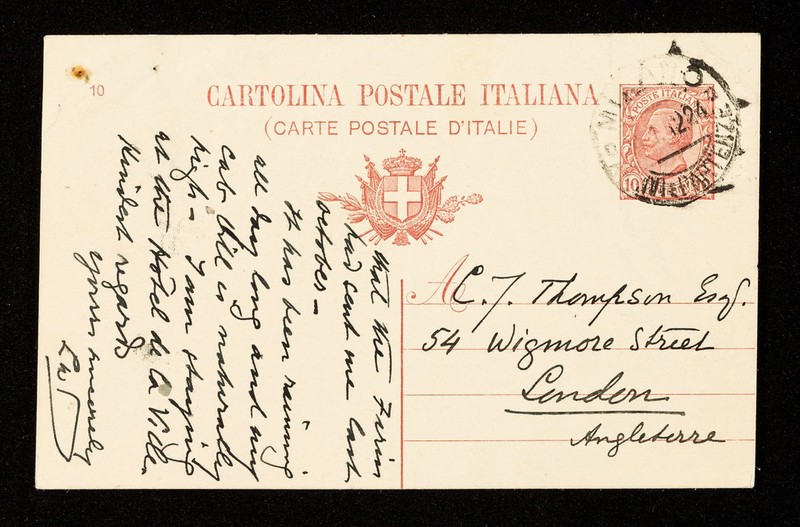 10
CARTOLINA POSTALE ITALIANA
(CARTE POSTALE D'ITALIE)
POSTE ITALIANE
10
MILANO
PARTENZE
A C. J. Thompson Esq.
54 Wigmore Street
London
Angleterre
that the Firm
had sent me last
october –
It has been raining
all day long and my
cab bill is naturally
high – I am staying
at the Hôtel de la Ville.
Kindest regards
yours sincerely